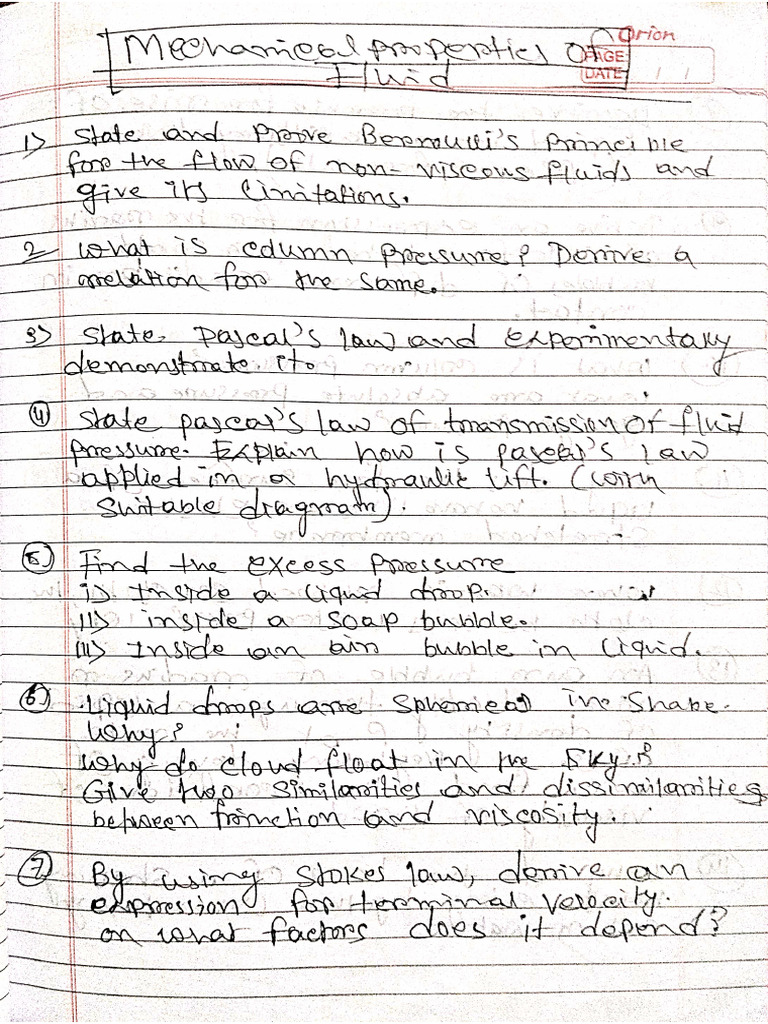 Orion
PAGE
DATE / /
Mechanical properties of
Fluid
1) State and Prove Bernoulli's Principle
for the flow of non-viscous fluids and
give its limitations.
2 What is column Pressure? Derive a
relation for the same.
3) State Pascal's law and experimentary
demonstrate it.
4 State pascal's law of transmission of fluid
pressure. Explain how is pascal's law
applied in a hydraulic lift. (with
suitable diagram).
5) Find the excess pressure
i) Inside a liquid drop.
ii) inside a soap bubble.
iii) Inside an air bubble in liquid.
6) Liquid drops are spherical in shape.
Why?
Why do cloud float in the sky?
Give two similarities and dissimilarities
between friction and viscosity.
7 By using stokes law, derive an
expression for terminal velocity.
on what factors does it depend?